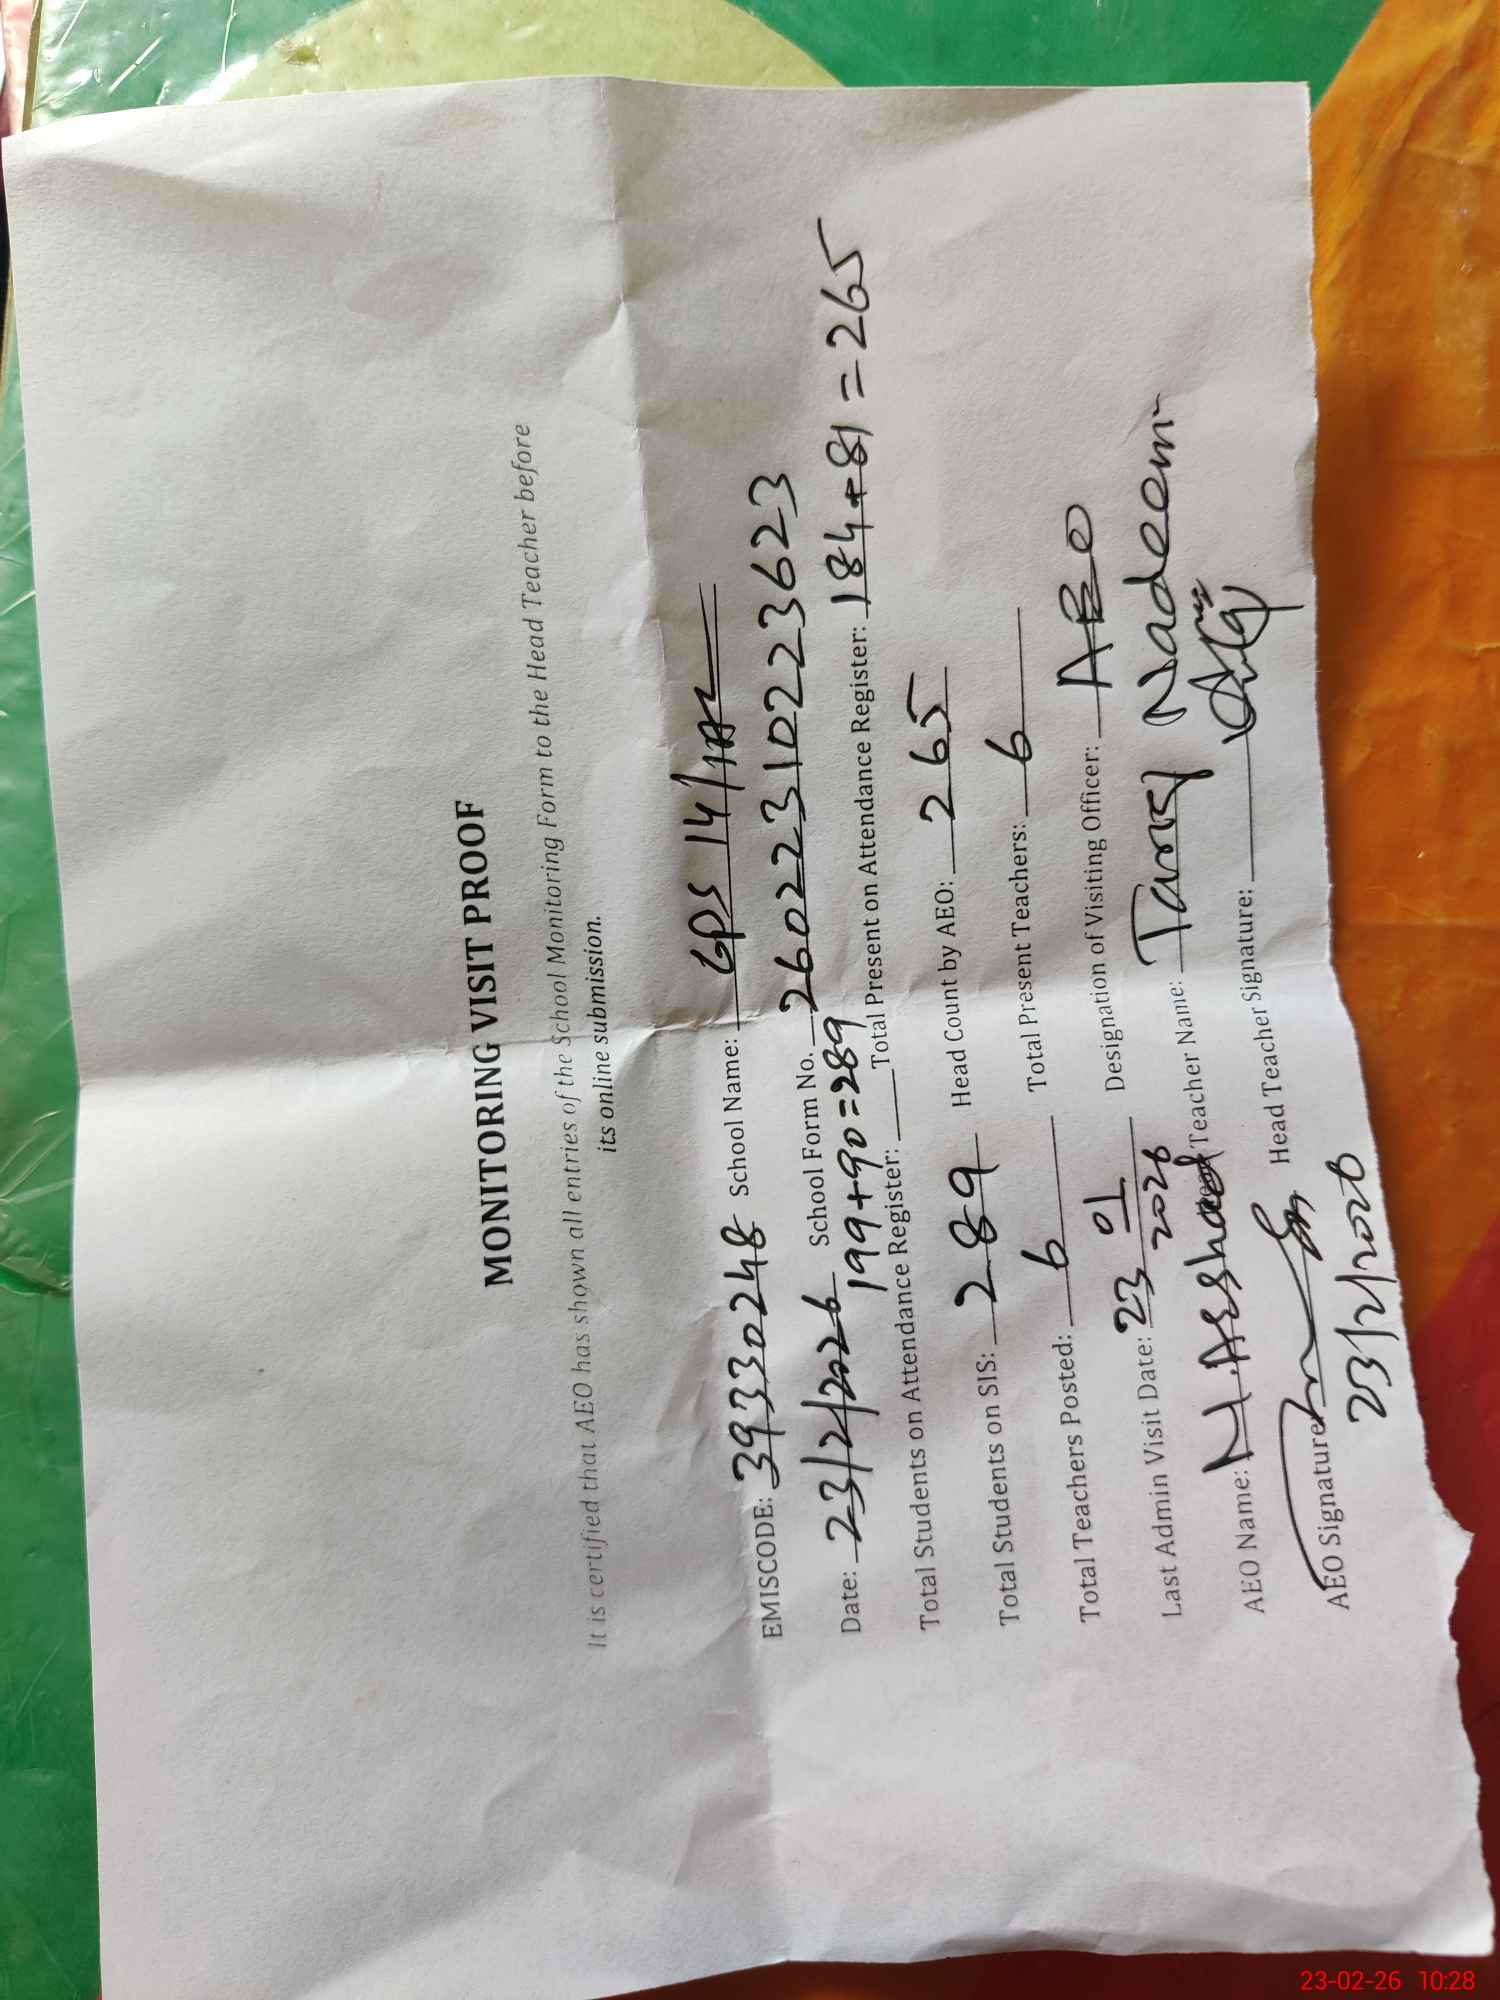 MONITORING VISIT PROOF
It is certified that AEO has shown all entries of the School Monitoring Form to the Head Teacher before
its online submission.
EMISCODE: 39330248 School Name: GPS 14/
Date: 23/2/2026 School Form No. 26022310223623
199+90=289
Total Students on Attendance Register: Total Present on Attendance Register: 184+81=265
Total Students on SIS: 289 Head Count by AEO: 265
Total Teachers Posted: 6 Total Present Teachers: 6
Last Admin Visit Date: 23 01 2026 Designation of Visiting Officer: AEO
AEO Name: M. Arshad Teacher Name: Nadeem
AEO Signature Head Teacher Signature:
23/2/2026
23-02-26 10:28